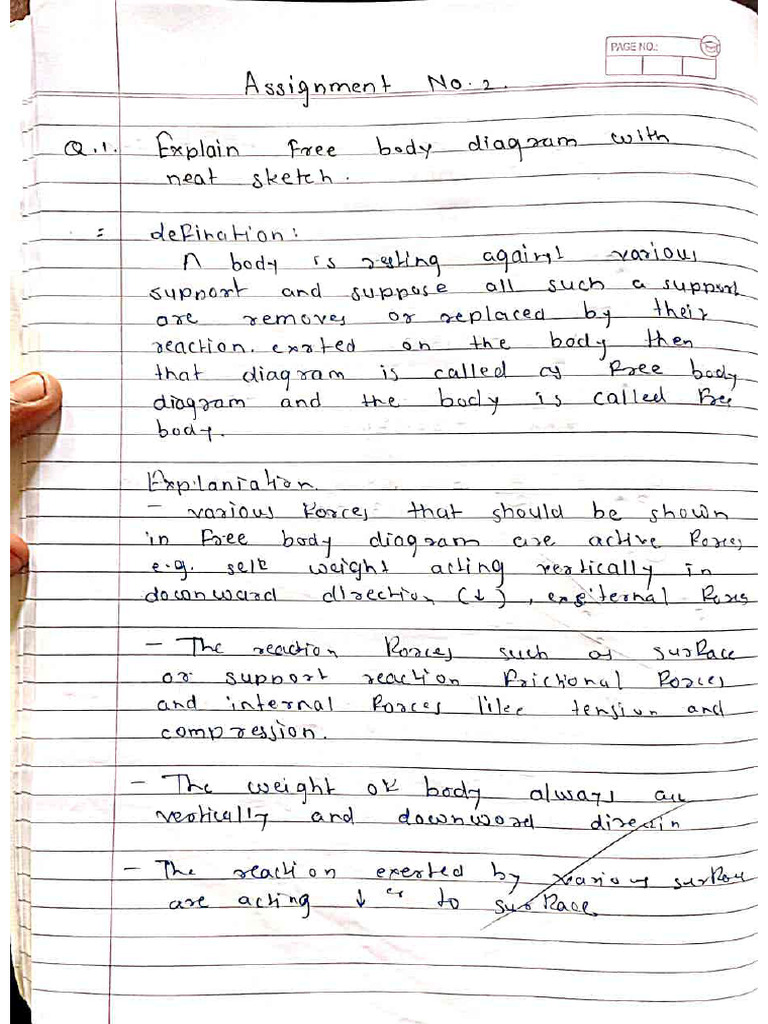 PAGE NO.:
Assignment No. 2.
Q.1. Explain Free body diagram with
neat sketch.
= defination:
A body is resting against various
support and suppose all such a support
are removes or replaced by their
reaction. exrted on the body then
that diagram is called as Free body
diagram and the body is called Free
body.
Explaniation.
- various Forces that should be shown
in Free body diagram are active Forces
e.g. self weight acting vertically in
downward direction (↓), exsiternal Forces
- The reaction Forces such as surface
or support reaction frictional Forces
and internal Forces like tension and
compression.
- The weight of body always act
vertically and downword direction
- The reaction exerted by various surface
are acting ↓er to surface.